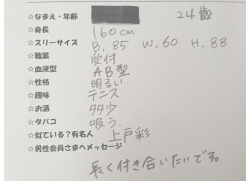 ☆なまえ・年齢 24歳
☆身長 160cm
☆スリーサイズ B.85 W.60 H.88
☆職業 受付
☆血液型 AB型
☆性格 明るい
☆趣味 テニス
☆お酒 多少
☆タバコ 吸う.
☆似ている?有名人 上戸彩
☆男性会員さまへメッセージ
長く付き合いたいです。